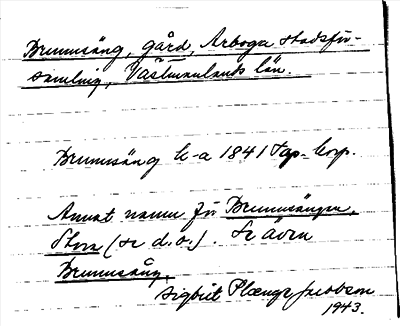 Brunnsäng, gård, Arboga stadsför-
samling, Västmanlands län.
Brunnsäng h-a 1841 Top. Corp.
Annat namn för Brunnsängen,
Stora (se d.o.). Se även
Brunnsäng.
Sigbrit Plænge Jacobson
1943.